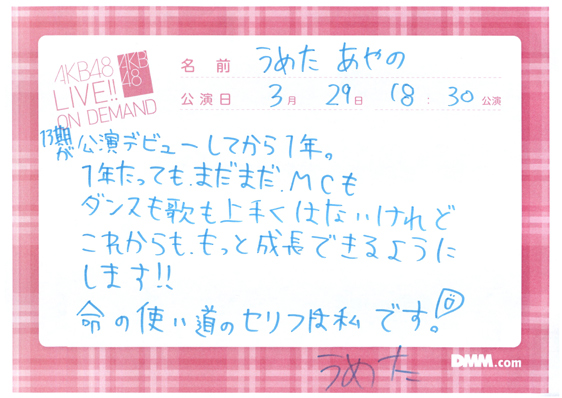 AKB48
LIVE!!
ON DEMAND
AKB
48
名 前 うめた あやの
公演日 3月 29日 18:30公演
13期が公演デビューしてから1年。
1年たっても、まだまだ、MCも
ダンスも歌も上手くはないけれど
これからも、もっと成長できるように
します!!
命の使い道のセリフは私です。
うめた
DMM.com